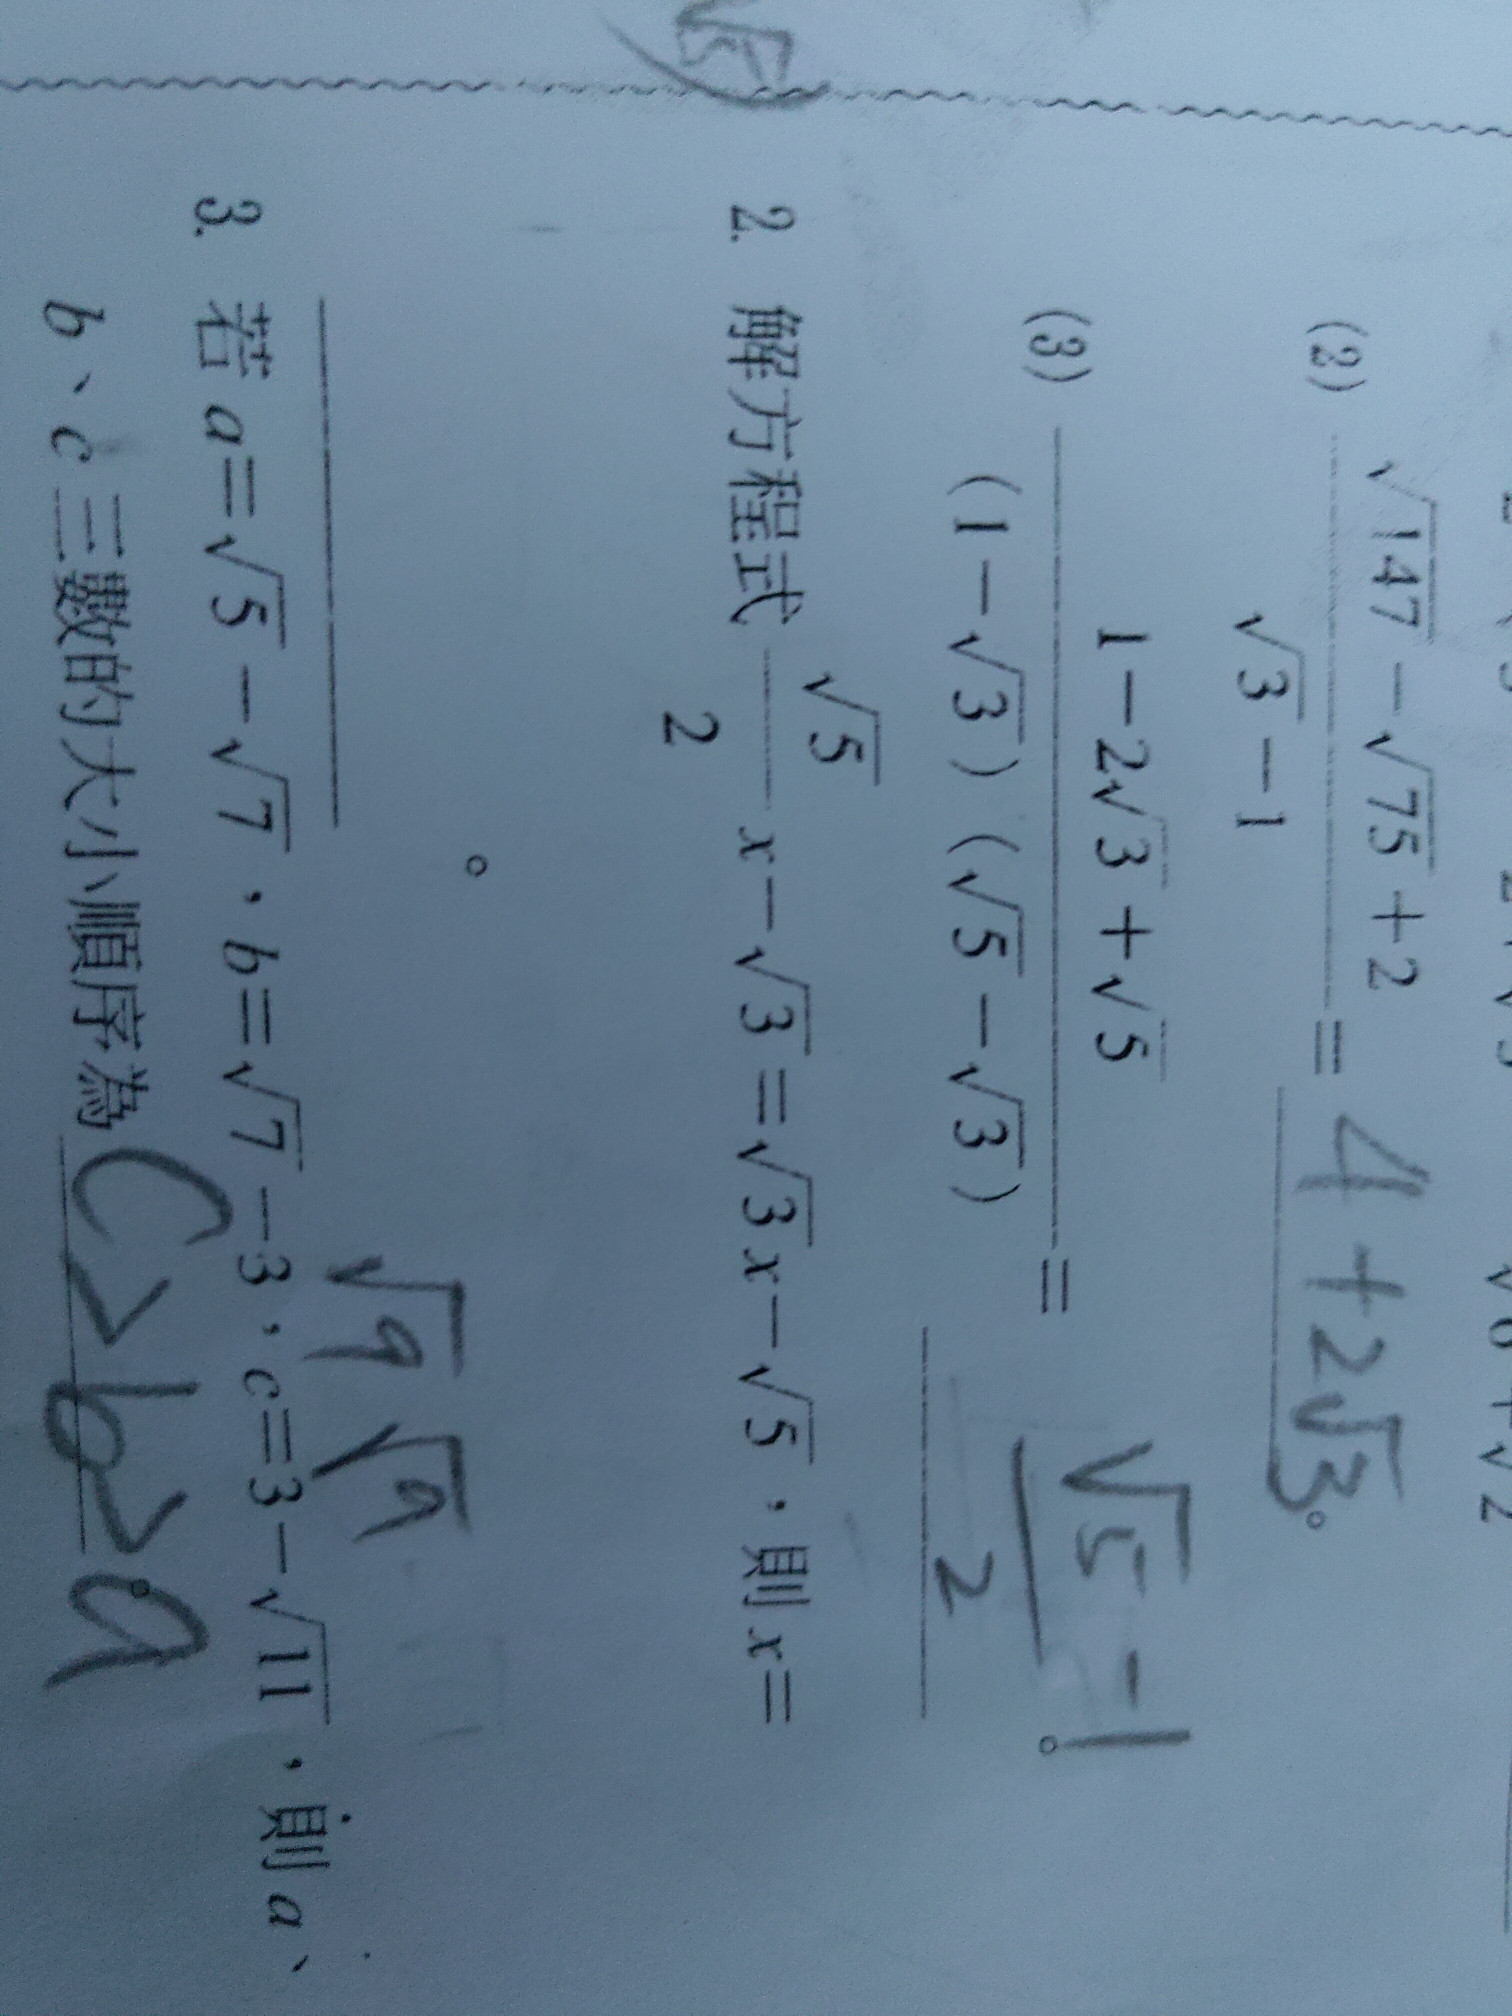 (2) (√147 − √75 + 2)/(√3 − 1) = 4 + 2√3。
(3) (1 − 2√3 + √5)/((1 − √3)(√5 − √3)) = (√5 − 1)/2。
2. 解方程式 (√5/2)x − √3 = √3x − √5,則 x =
。
√9 √9
3. 若 a = √5 − √7,b = √7 − 3,c = 3 − √11,則 a、
b、c 三數的大小順序為 c>b>a。